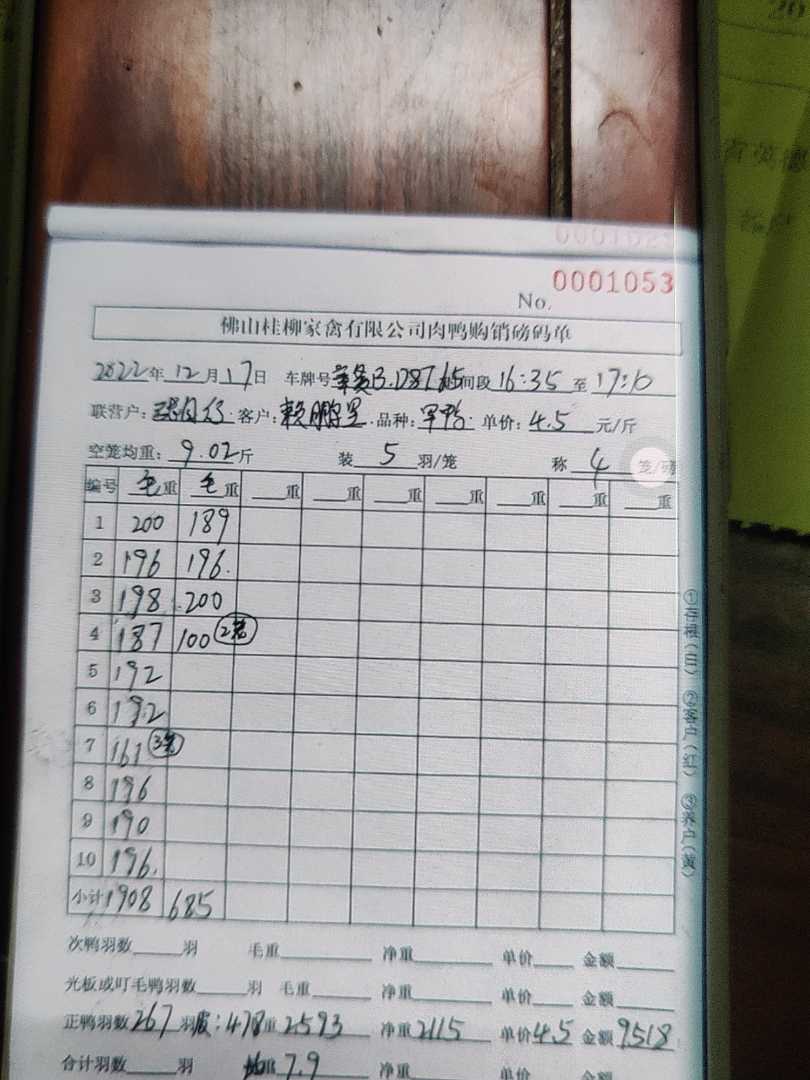 0001053
No.
佛山桂柳家禽有限公司肉鸭购销磅码单
2022年12月17日 车牌号 时间段16:35至17:10
联营户: 客户:赖鹏 品种: 单价:4.5元/斤
空笼均重:9.02斤 装5羽/笼 称4笼/磅
编号 毛重 毛重 重 重 重 重 重 重 重
1 200 189
2 196 196.
3 198 200
4 187 100 2笼
5 192
6 192
7 161 3笼
8 196
9 190
10 196.
小计 1908 685
①存根(白) ②客户(红) ③养户(黄)
次鸭羽数 羽 毛重 净重 单价 金额
光板或叮毛鸭羽数 羽 毛重 净重 单价 金额
正鸭羽数267羽 皮:478 重2593 净重2115 单价4.5 金额9518
合计羽数 羽 7.9 净重 单价 金额